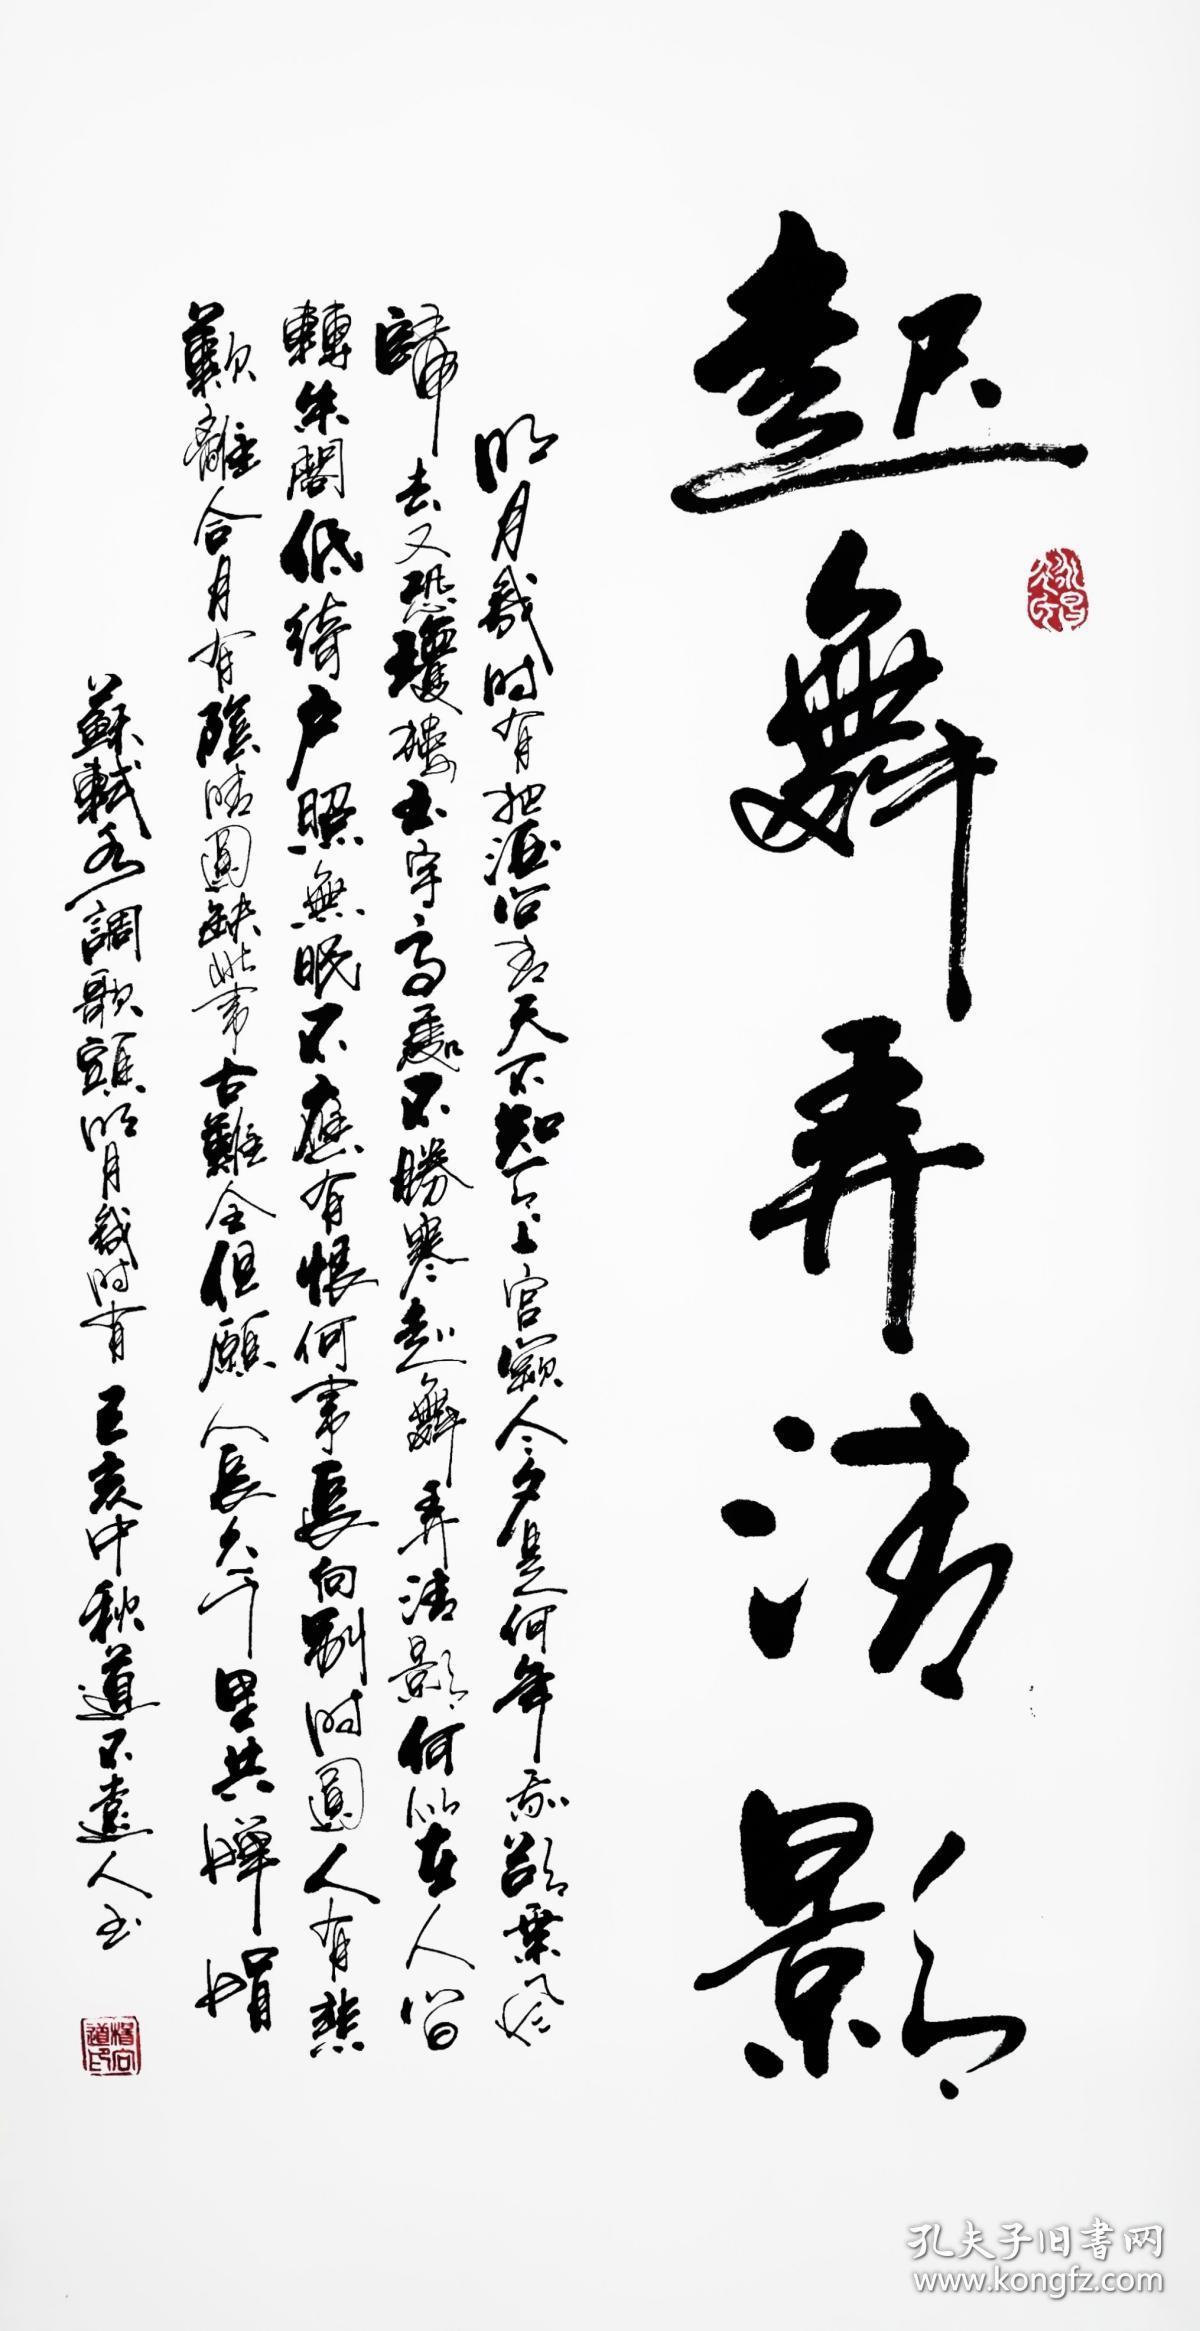 起舞弄清影
明月幾时有把酒问青天不知天上宫闕今夕是何年我欲乘风
歸去又恐瓊樓玉宇高處不勝寒起舞弄清影何似在人间
轉朱閣低绮户照無眠不應有恨何事長向别时圓人有悲
歡離合月有陰晴圓缺此事古難全但願人長久千里共嬋娟
蘇軾水調歌頭明月幾时有 己亥中秋道不遠人书
孔夫子旧书网
www.kongfz.com